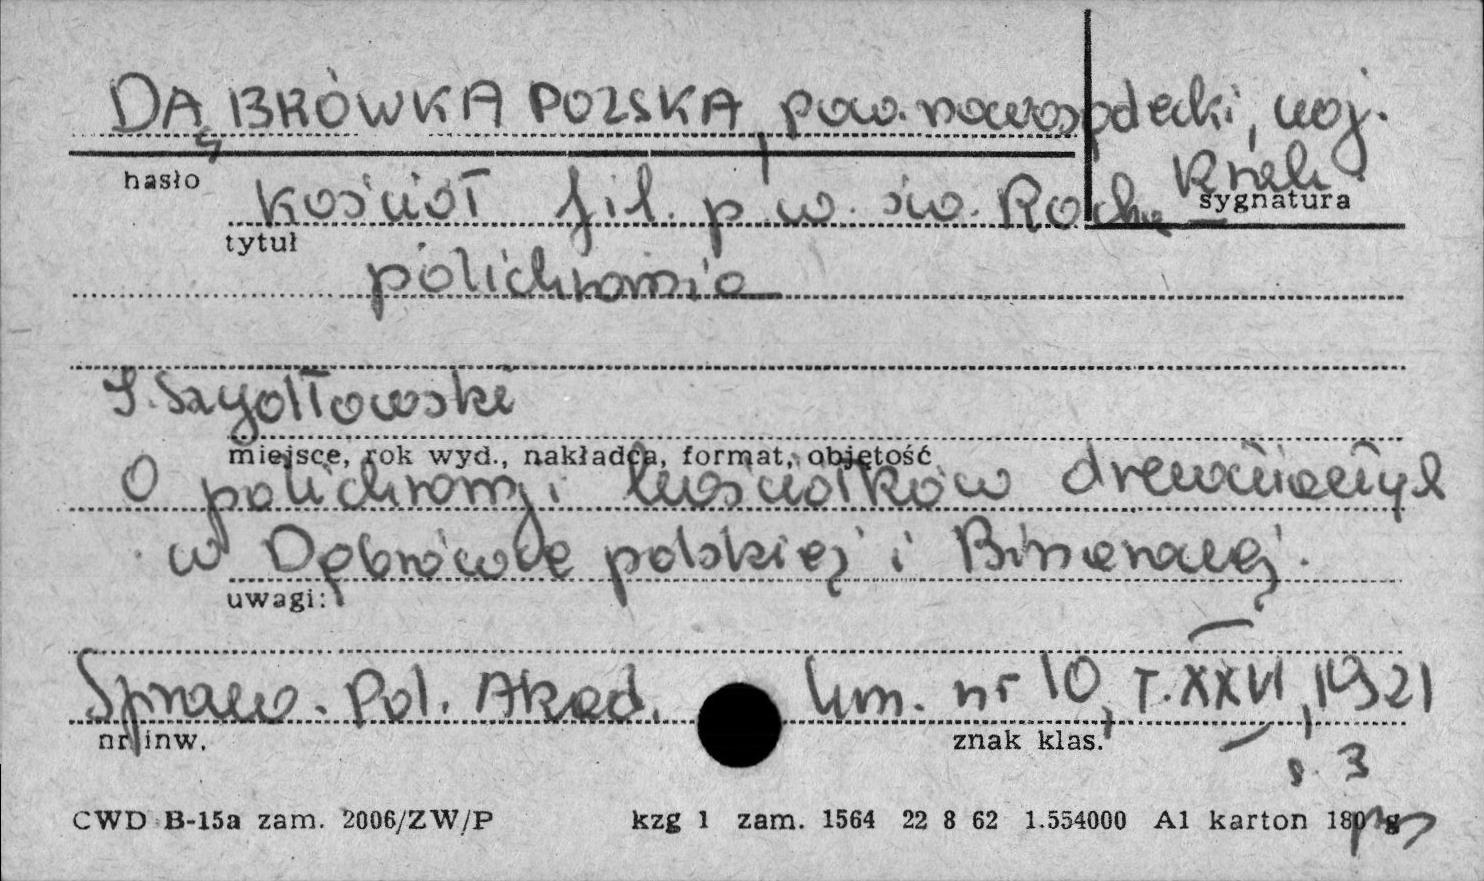 DĄBRÓWKA POLSKA, pow. nowosądecki, woj.
hasło
Krak.
sygnatura
kościół fil. p.w. św. Rocha
tytuł
polichromia
S. Szydłowski
miejsce, rok wyd., nakładca, format, objętość
O polichromji kościołków drewnianych
w Dąbrówce polskiej i Binarowej.
uwagi:
Spraw. Pol. Akad. Um. nr 10, T. XXVI, 1921
nr inw.
znak klas.
s. 3
CWD B-15a zam. 2006/ZW/P kzg 1 zam. 1564 22 8 62 1.554000 A1 karton 180 g